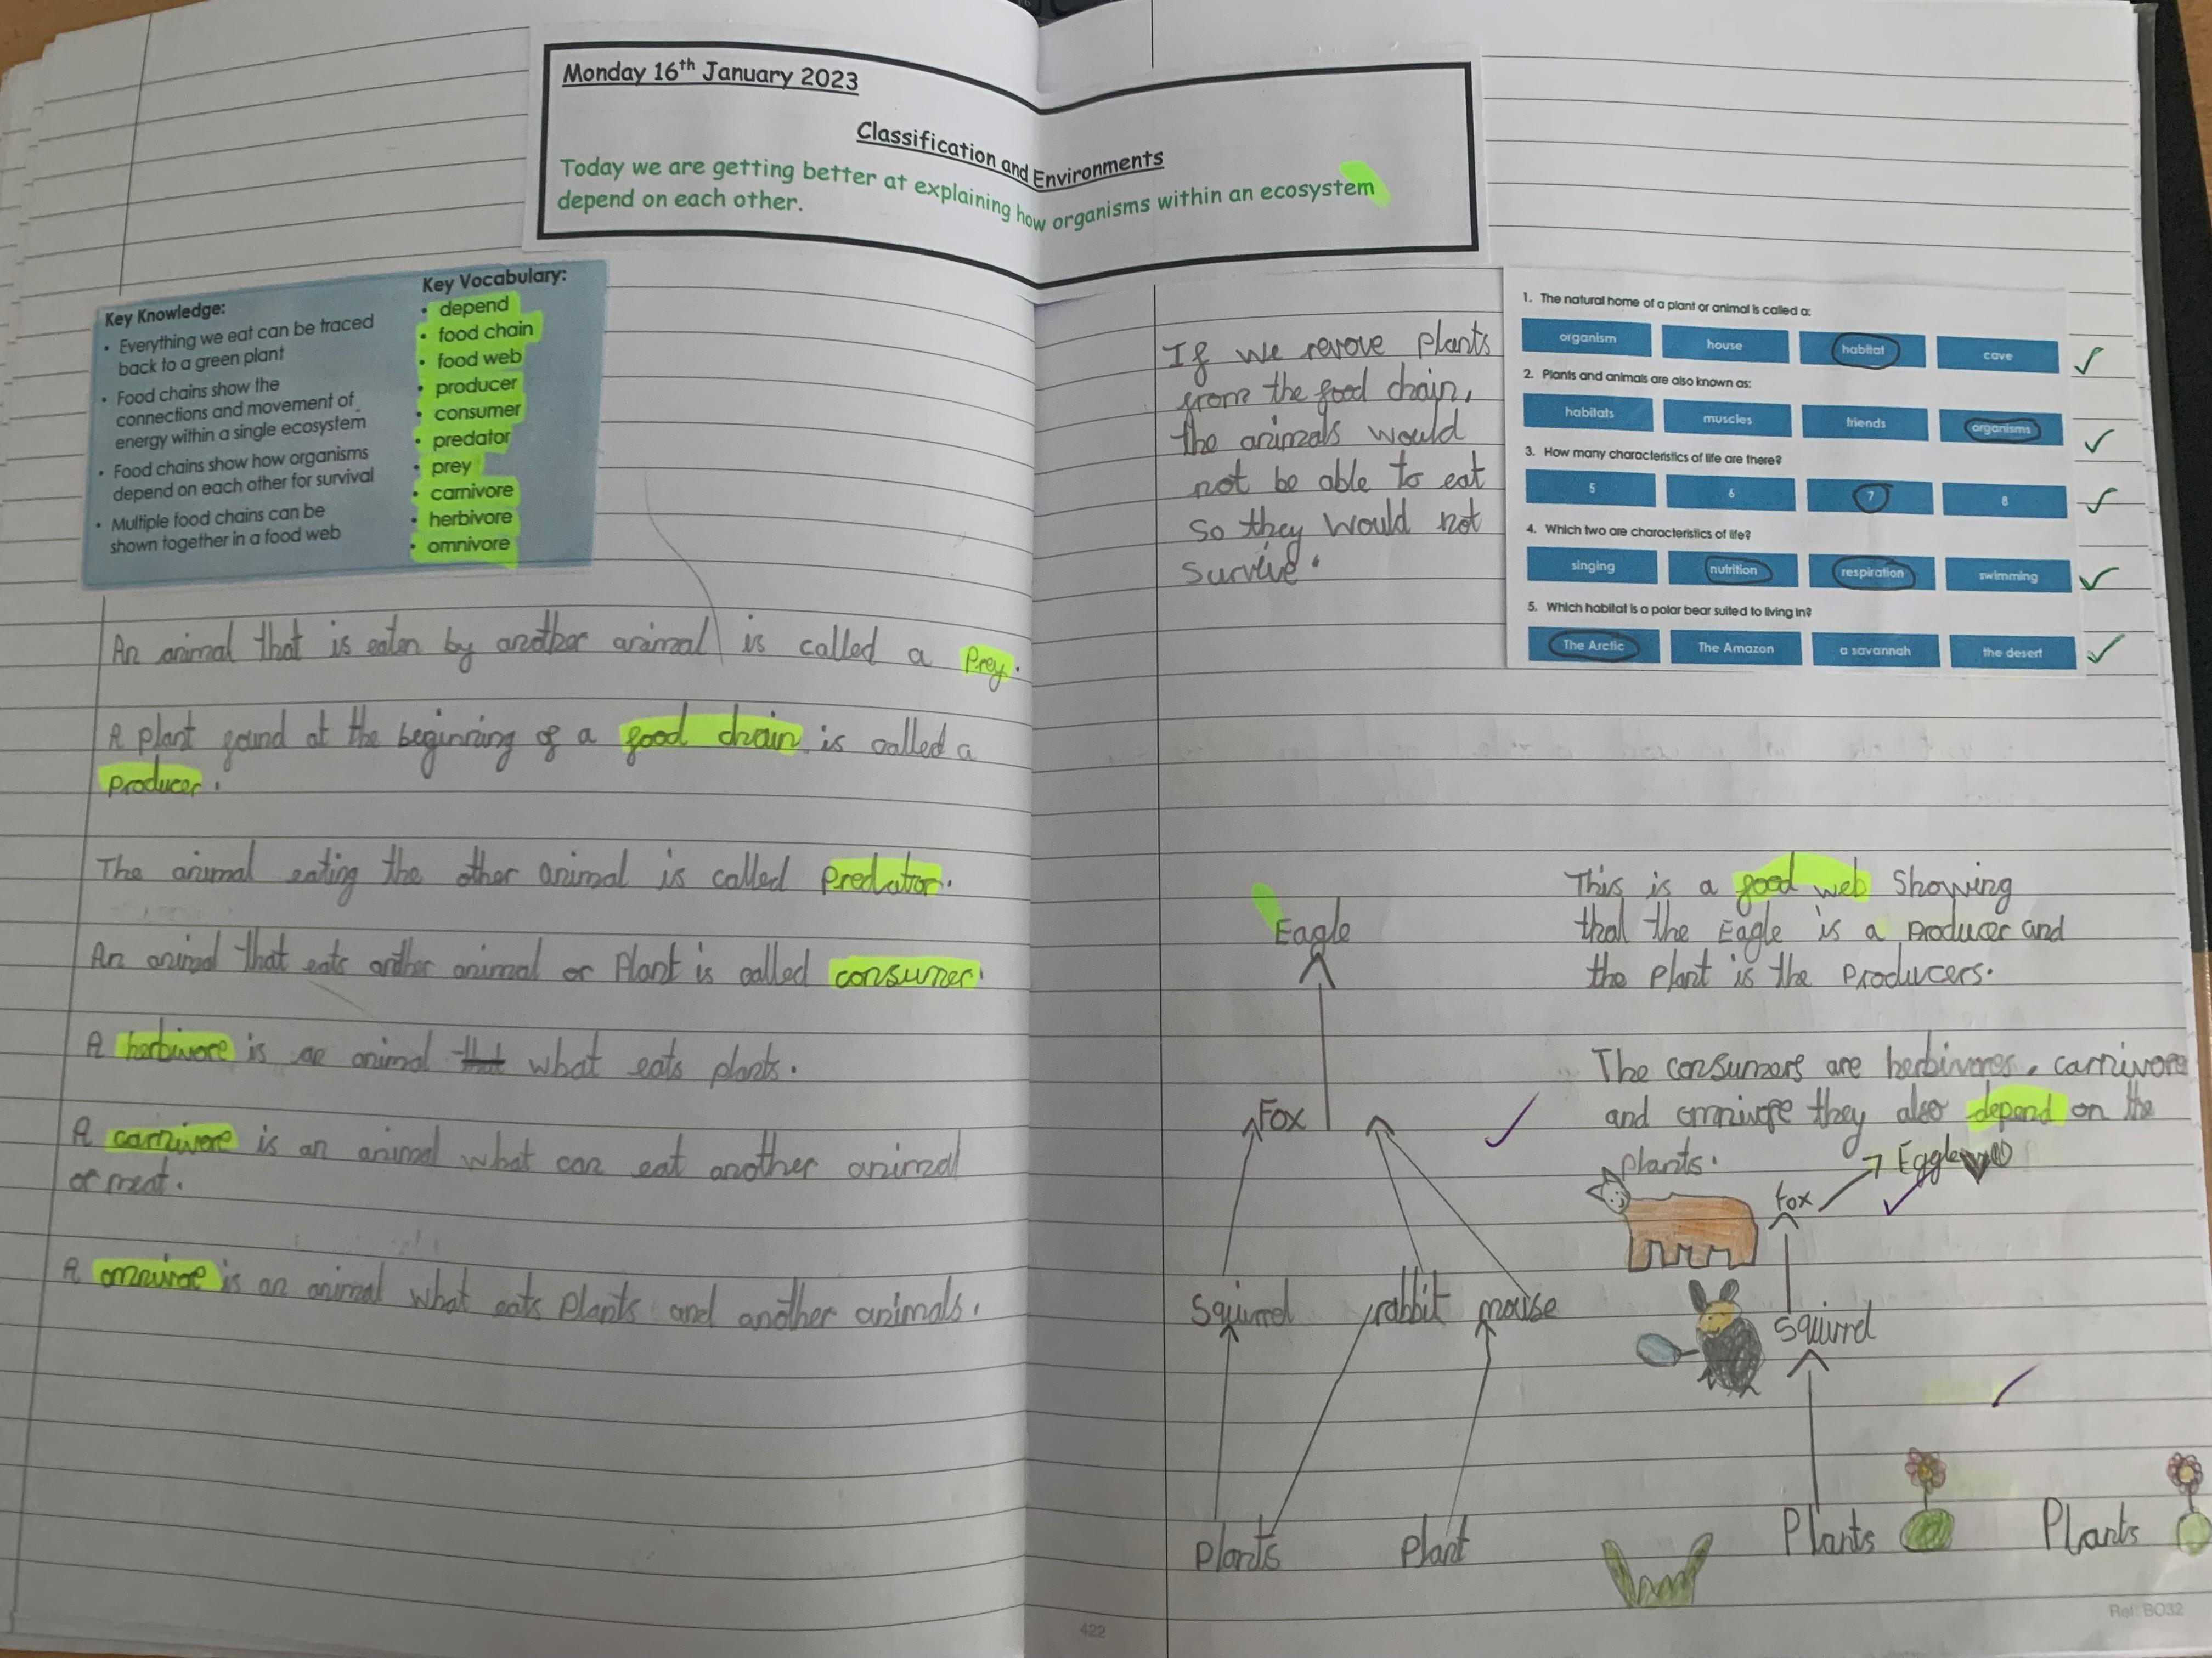 Monday 16th January 2023
Classification and Environments
Today we are getting better at explaining how organisms within an ecosystem
depend on each other.
Key Knowledge:
• Everything we eat can be traced
back to a green plant
• Food chains show the
connections and movement of
energy within a single ecosystem
• Food chains show how organisms
depend on each other for survival
• Multiple food chains can be
shown together in a food web
Key Vocabulary:
• depend
• food chain
• food web
• producer
• consumer
• predator
• prey
• carnivore
• herbivore
• omnivore
An animal that is eaten by another animal is called a Prey.
A plant found at the beginning of a food chain is called a
producer.
The animal eating the other animal is called predator.
An animal that eats another animal or Plant is called consumer.
A herbivore is an animal that what eats plants.
A carnivore is an animal what can eat another animal
or meat.
A omnivore is an animal what eats plants and another animals.
If we revove plants
from the food chain,
the animals would
not be able to eat
so they would not
survive.
1. The natural home of a plant or animal is called a:
organism house habitat cave
2. Plants and animals are also known as:
habitats muscles friends organisms
3. How many characteristics of life are there?
5 6 7 8
4. Which two are characteristics of life?
singing nutrition respiration swimming
5. Which habitat is a polar bear suited to living in?
The Arctic The Amazon a savannah the desert
Eagle
Fox
Squirrel rabbit mouse
plants plant
This is a food web showing
that the Eagle is a producer and
the plant is the producers.
The consumers are herbivores, carnivore
and omnivore they also depend on the
plants.
Eggle
fox
squirrel
Plants Plants
422
Ref: BO32